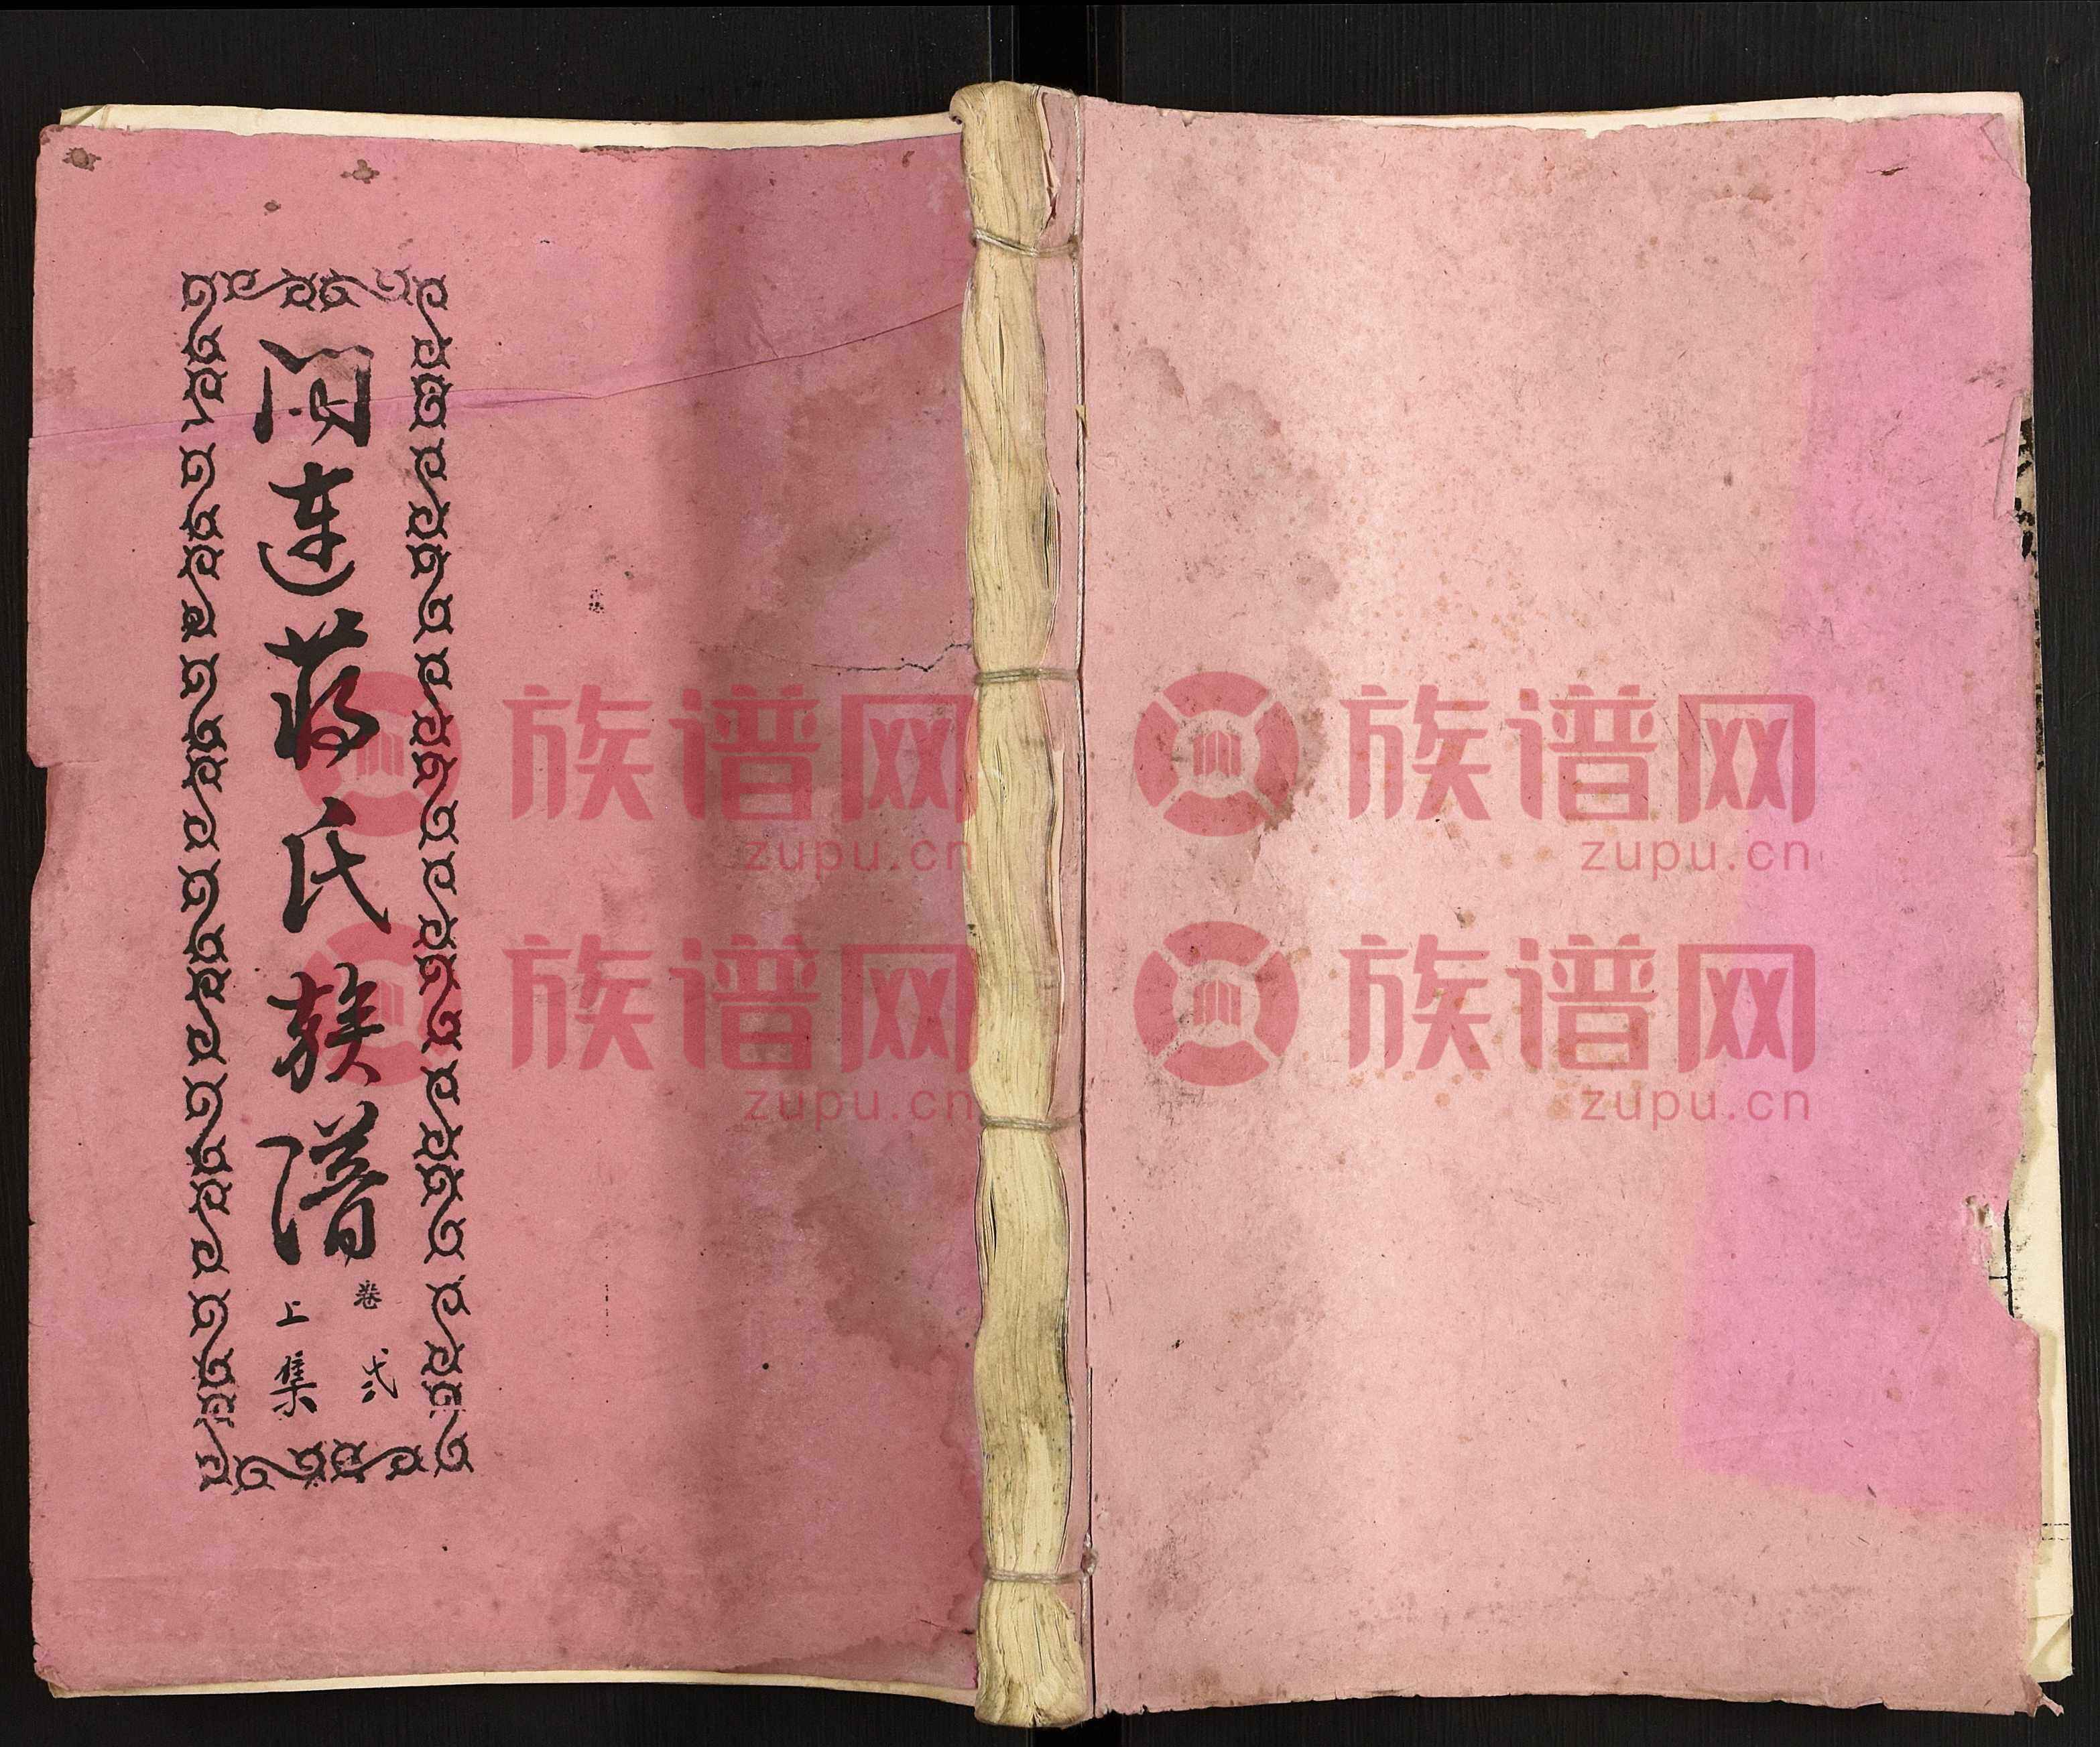 蒋氏族谱
卷弍
上集
族谱网
zupu.cn
族谱网
zupu.cn
族谱网
zupu.cn
族谱网
zupu.cn